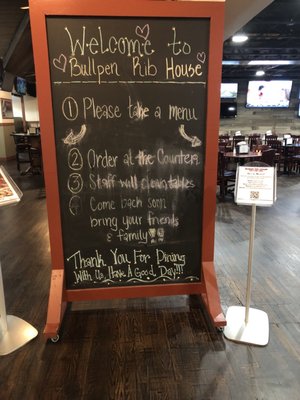 Welcome to
Bullpen Rib House
1 Please take a menu
2 Order at the Counter
3 Staff will clean tables
Come back soon
bring your friends
& family!!
Thank You For Dining
With Us, Have A Good Day!!!